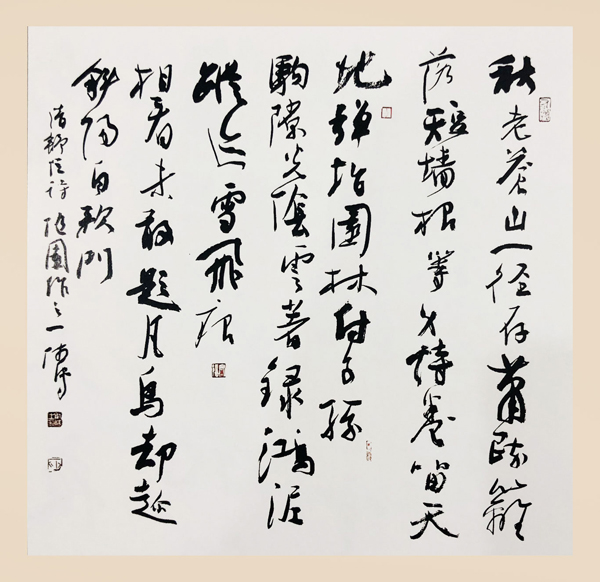 秋老蒼山一徑存蕭疏籬
落短墻根等身詩卷留天
地彈指園林付子孫
駒隙光陰雲著錄鴻泥
蹤迹雪飛痕
相看未敢題凡鳥却趁
斜陽自款門
清柳詩隨園作之一